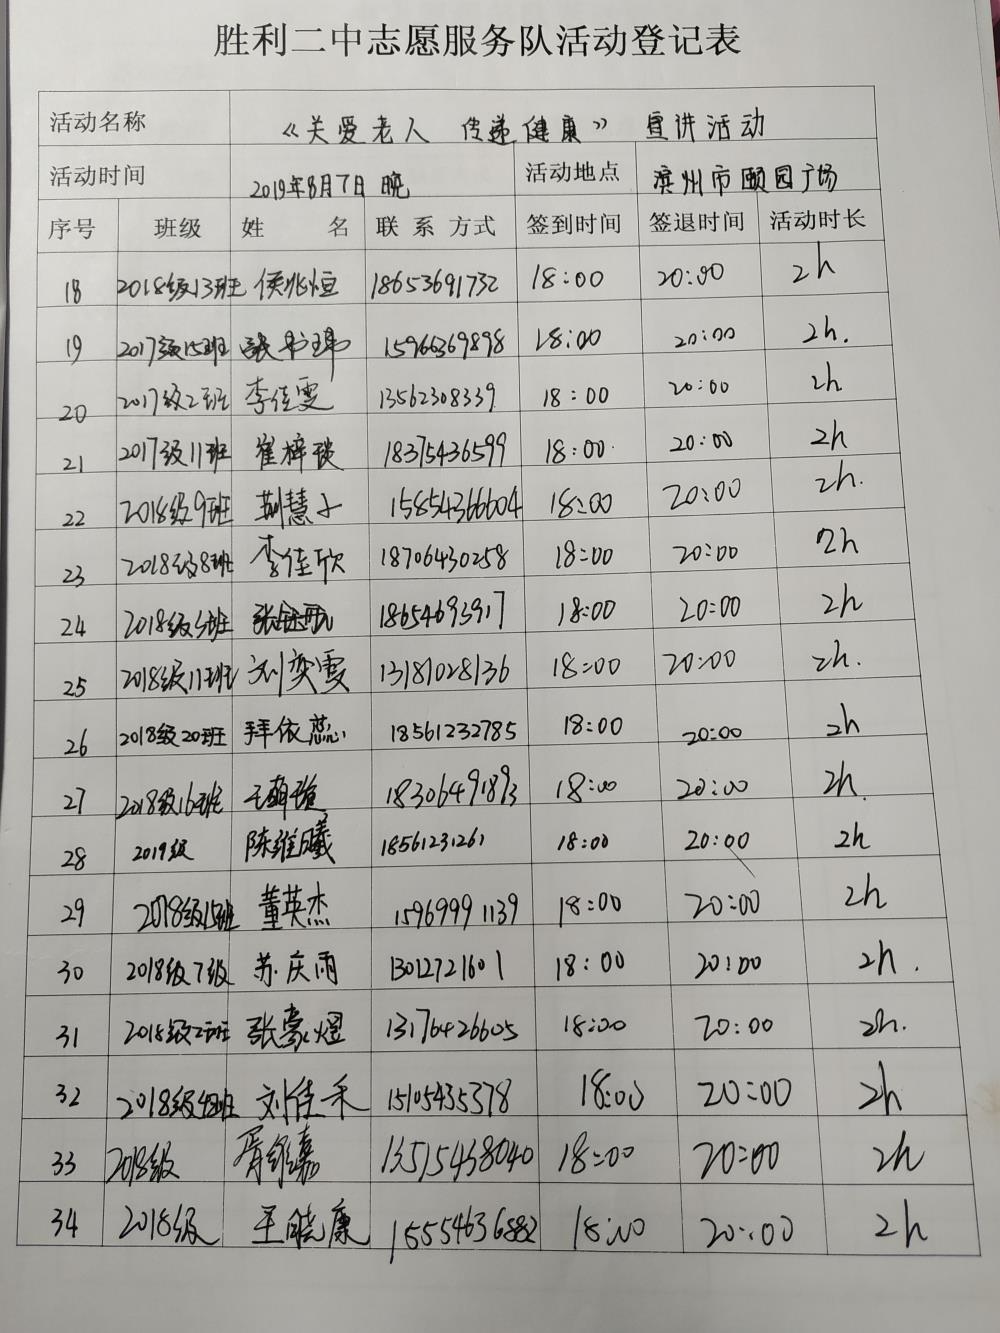 胜利二中志愿服务队活动登记表
活动名称 《关爱老人 传递健康》 宣讲活动
活动时间 2019年8月7日 晚 活动地点 滨州市颐园广场
序号 班级 姓 名 联系方式 签到时间 签退时间 活动时长
18 2018级13班 侯兆恒 18653691732 18:00 20:00 2h
19 2017级15班 张书玮 15966369898 18:00 20:00 2h.
20 2017级2班 李佳雯 13562308339 18:00 20:00 2h
21 2017级11班 崔梓琰 18375436599 18:00 20:00 2h
22 2018级9班 荆慧子 15854366604 18:00 20:00 2h.
23 2018级8班 李佳欣 18706430258 18:00 20:00 2h
24 2018级 18654693917 18:00 20:00 2h
25 2018级11班 刘奕雯 13181028136 18:00 20:00 2h.
26 2018级20班 拜依蕊 18561232785 18:00 20:00 2h
27 2018级16班 18306491893 18:00 20:00 2h
28 2019级 陈维曦 18561231261 18:00 20:00 2h
29 2018级15班 董英杰 15969991139 18:00 20:00 2h
30 2018级7级 苏庆雨 13012721601 18:00 20:00 2h.
31 2018级2班 张豪煜 13176426605 18:00 20:00 2h.
32 2018级4班 刘佳禾 15105435378 18:00 20:00 2h
33 2018级 胥维嘉 13515438040 18:00 20:00 2h
34 2018级 王晓康 15554636882 18:00 20:00 2h